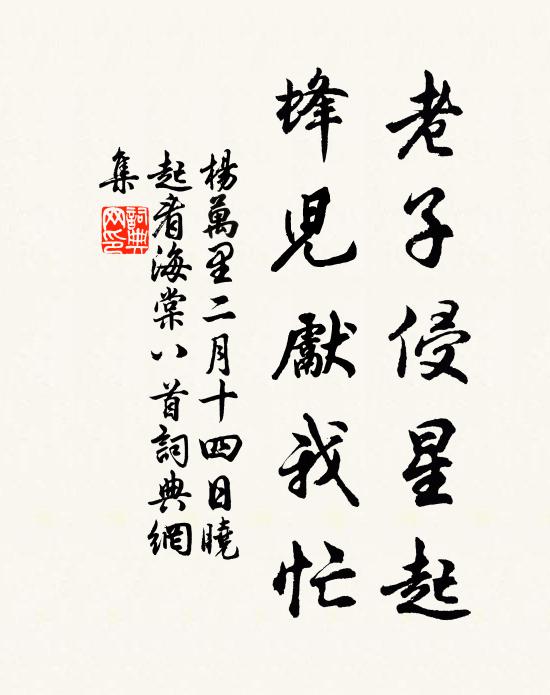 老子侵星起
蜂児獻我忙
楊萬里二月十四日曉
起看海棠八首詞典網
集
詞典
网印